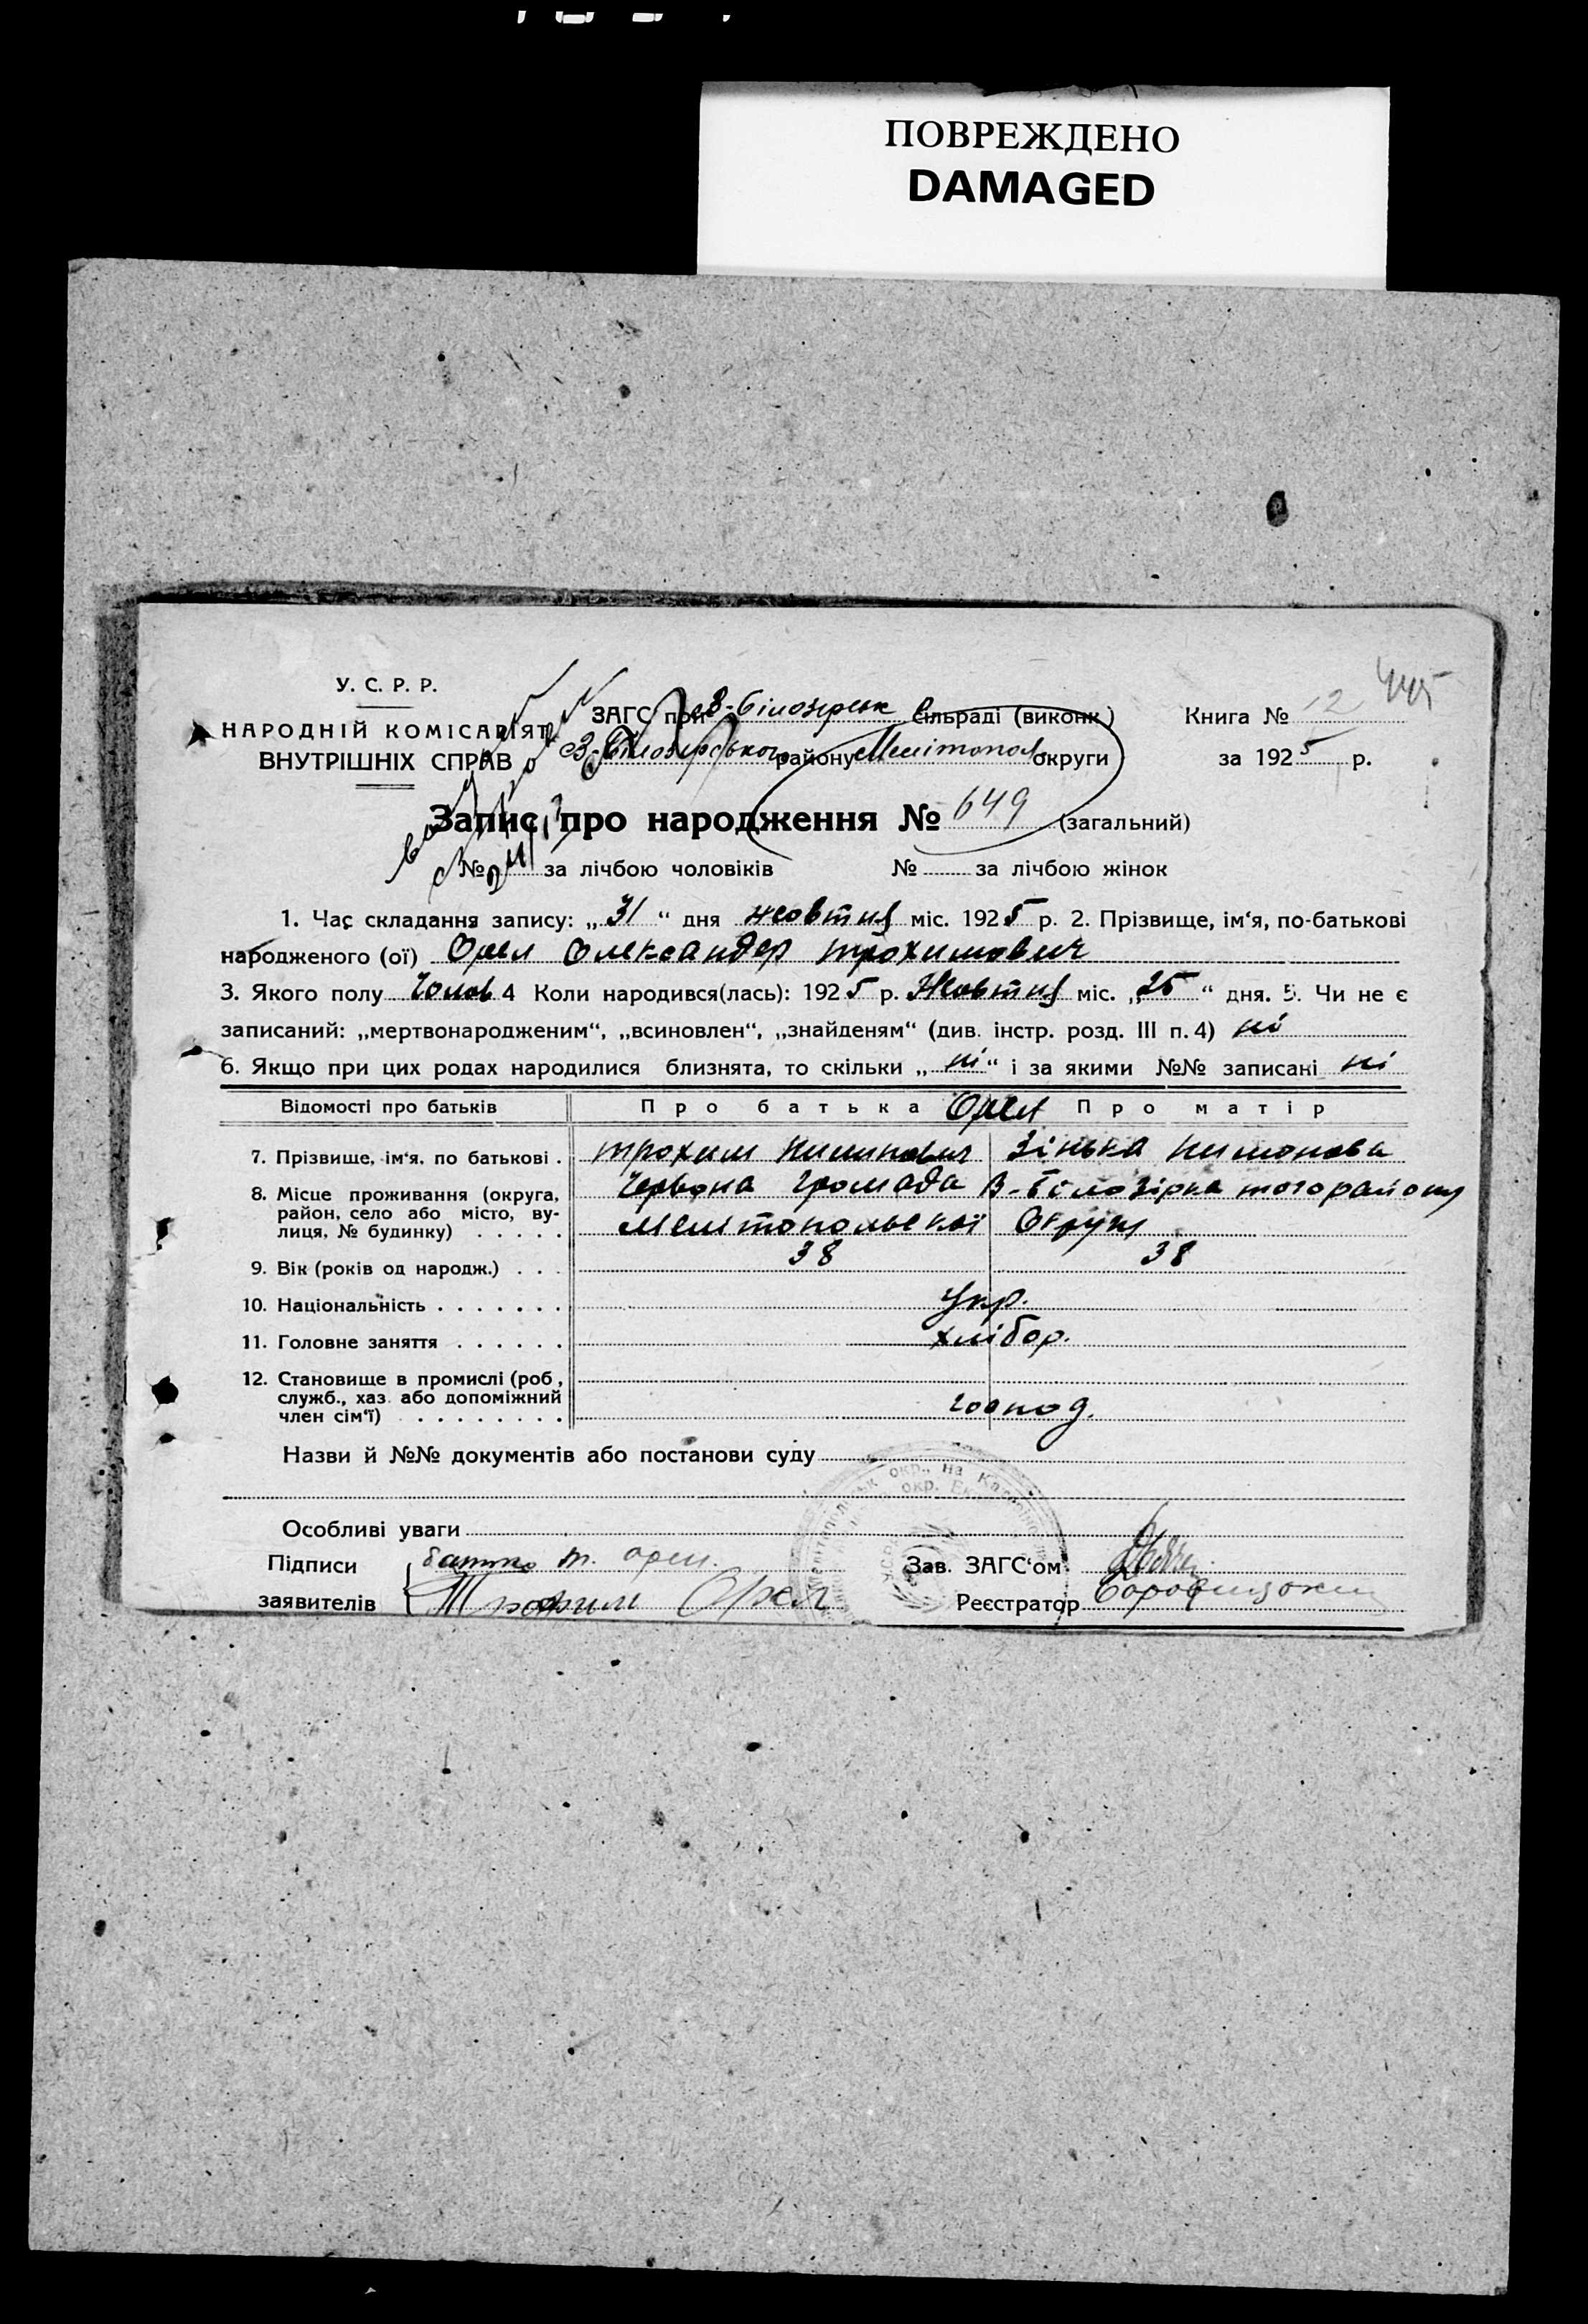 ПОВРЕЖДЕНО
DAMAGED
445
У. С. Р. Р.
НАРОДНІЙ КОМІСАРІЯТ
ВНУТРІШНІХ СПРАВ
ЗАГС при В-Білозерськ сільраді (виконк.)
В-Білозерського району Мелітопол. округи
Книга № 12
за 1925 р.
Запис про народження № 649 (загальний)
№ за лічбою чоловіків № за лічбою жінок
1. Час складання запису: „31“ дня жовтня міс. 1925 р. 2. Прізвище, ім‘я, по-батькові
народженого (ої) Орел Олександер Трохимович
3. Якого полу Чолов 4 Коли народився(лась): 1925 р. Жовтня міс. „25“ дня. 5. Чи не є
записаний: „мертвонародженим“, „всиновлен“, „знайденям“ (див. інстр. розд. III п. 4) ні
6. Якщо при цих родах народилися близнята, то скільки „ні“ і за якими №№ записані ні
Відомості про батьків Про батька Орел Про матір
7. Прізвище, ім‘я, по батькові . Трохим Зінька
8. Місце проживання (округа, район, село або місто, вулиця, № будинку) . . . . . Червона Громада В-Білозірка того району
Мелітопольскої Округи
9. Вік (років од народж.) . . . 38 38
10. Національність . . . . . . . Укр.
11. Головне заняття . . . . . . хлібор.
12. Становище в промислі (роб., служб., хаз. або допоміжний член сім‘ї) . . . . . . . . . господ.
Назви й №№ документів або постанови суду
Особливі уваги
Підписи батько т. орел.
заявителів Трофим Орел
Зав. ЗАГС‘ом
Реєстратор